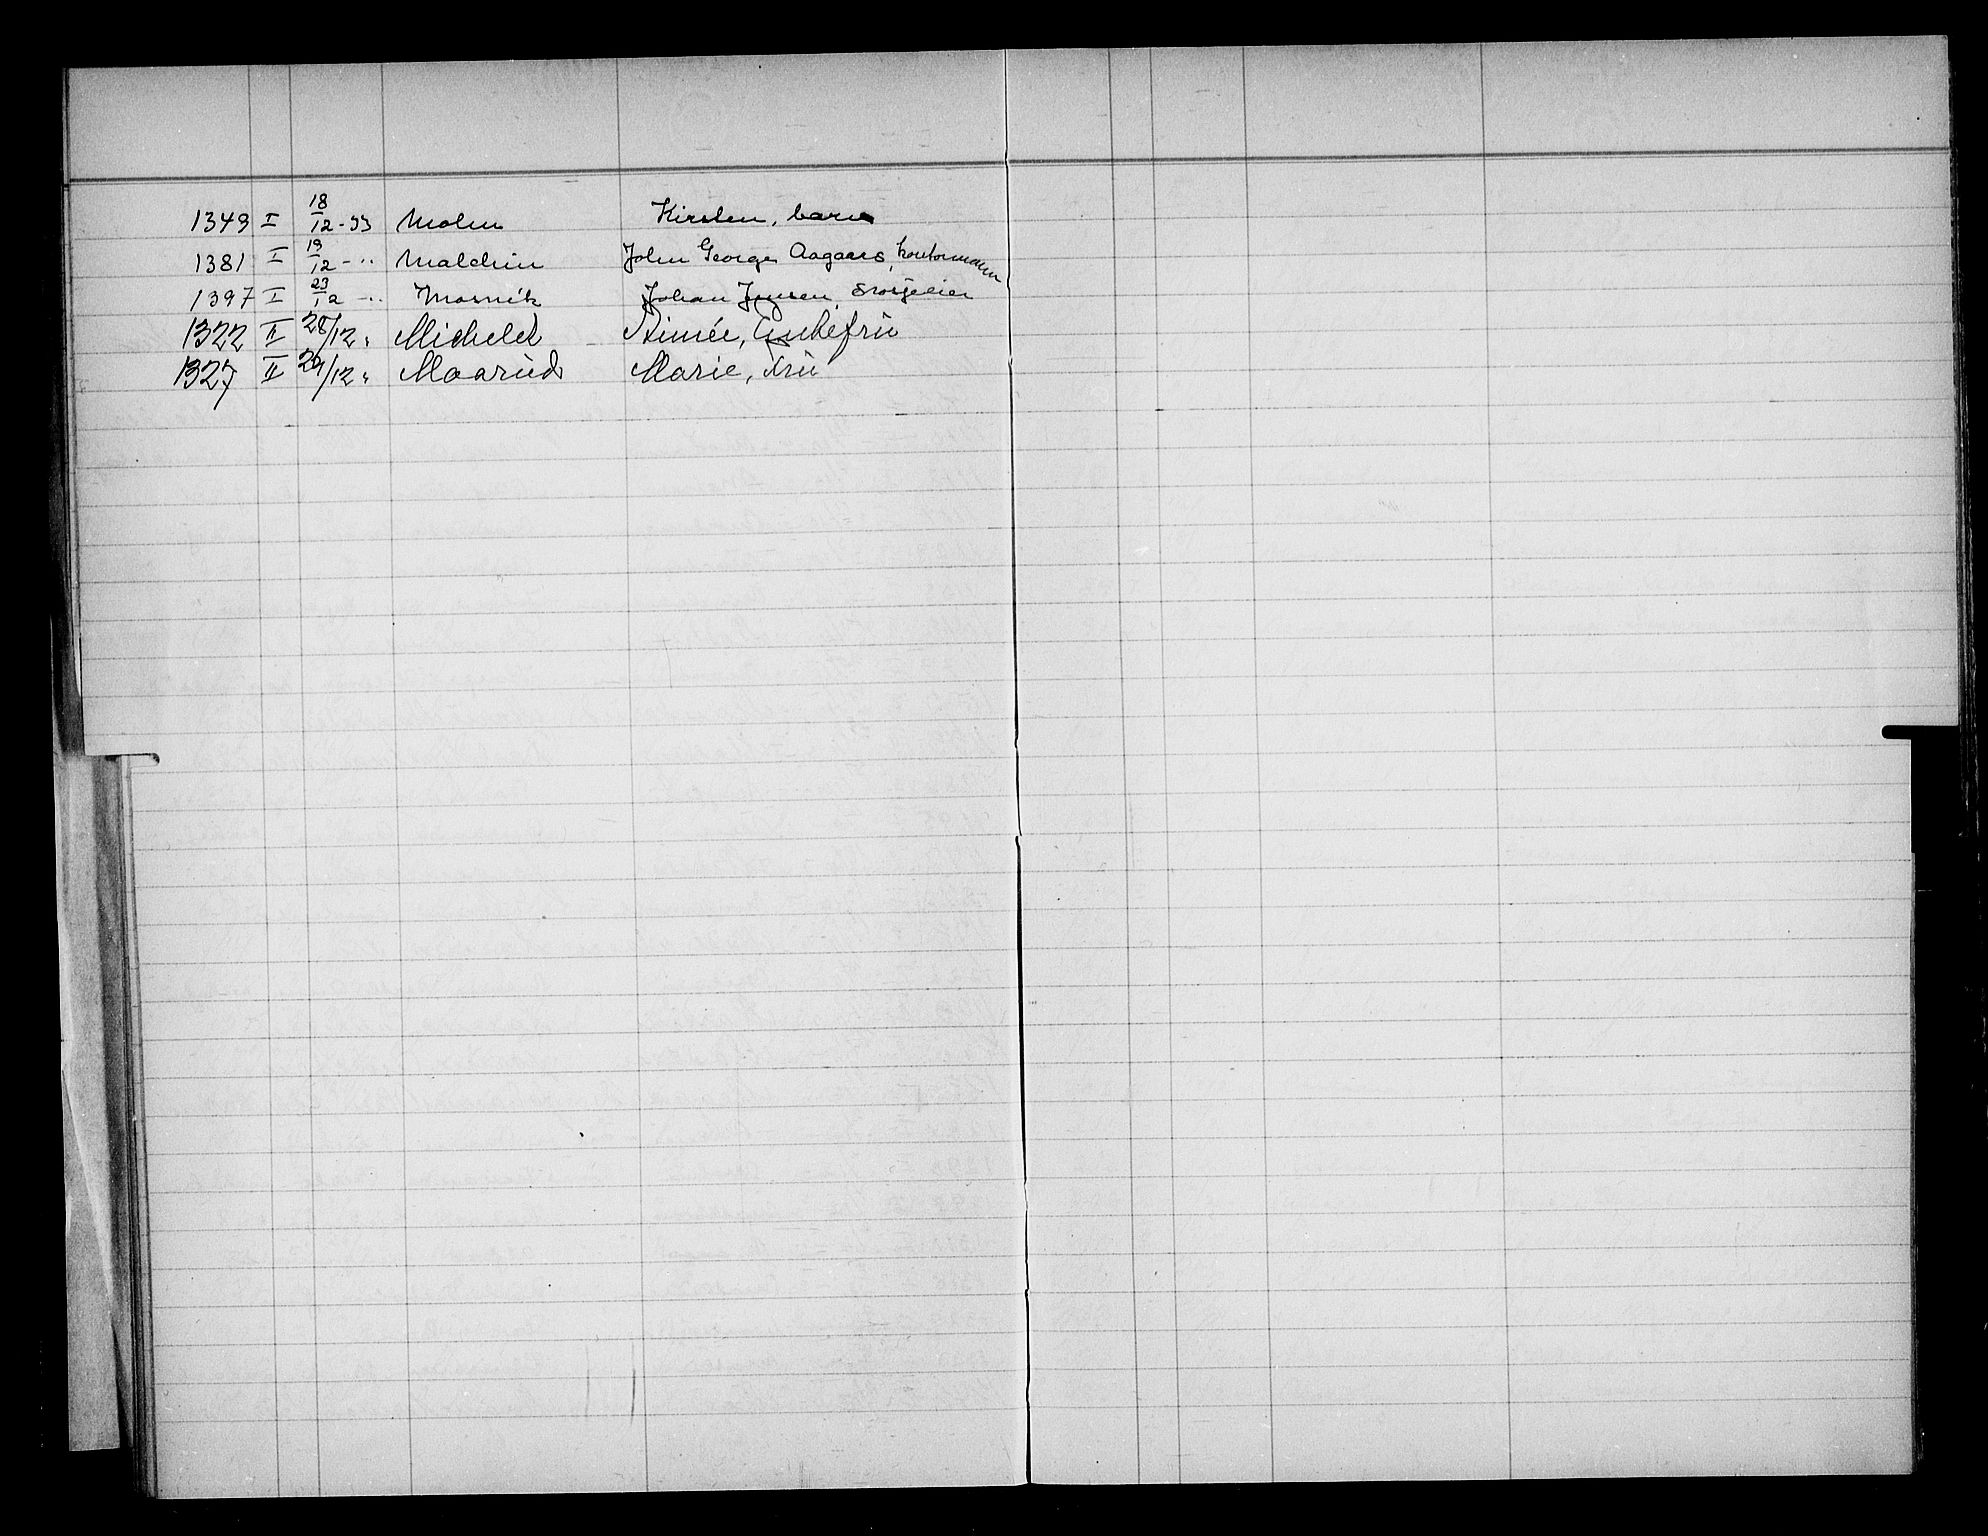 1349 I 18/12-33 Molm Kirsten, barn
1381 I 19/12 - " Malchin John George Aagaars, kontormann
1397 I 23/12 - " Mosnik Johan Jensen,
1322 II 28/12 " Michelet Aimée, Enkefrü
1327 II 29/12 " Maarüd Marie, frü